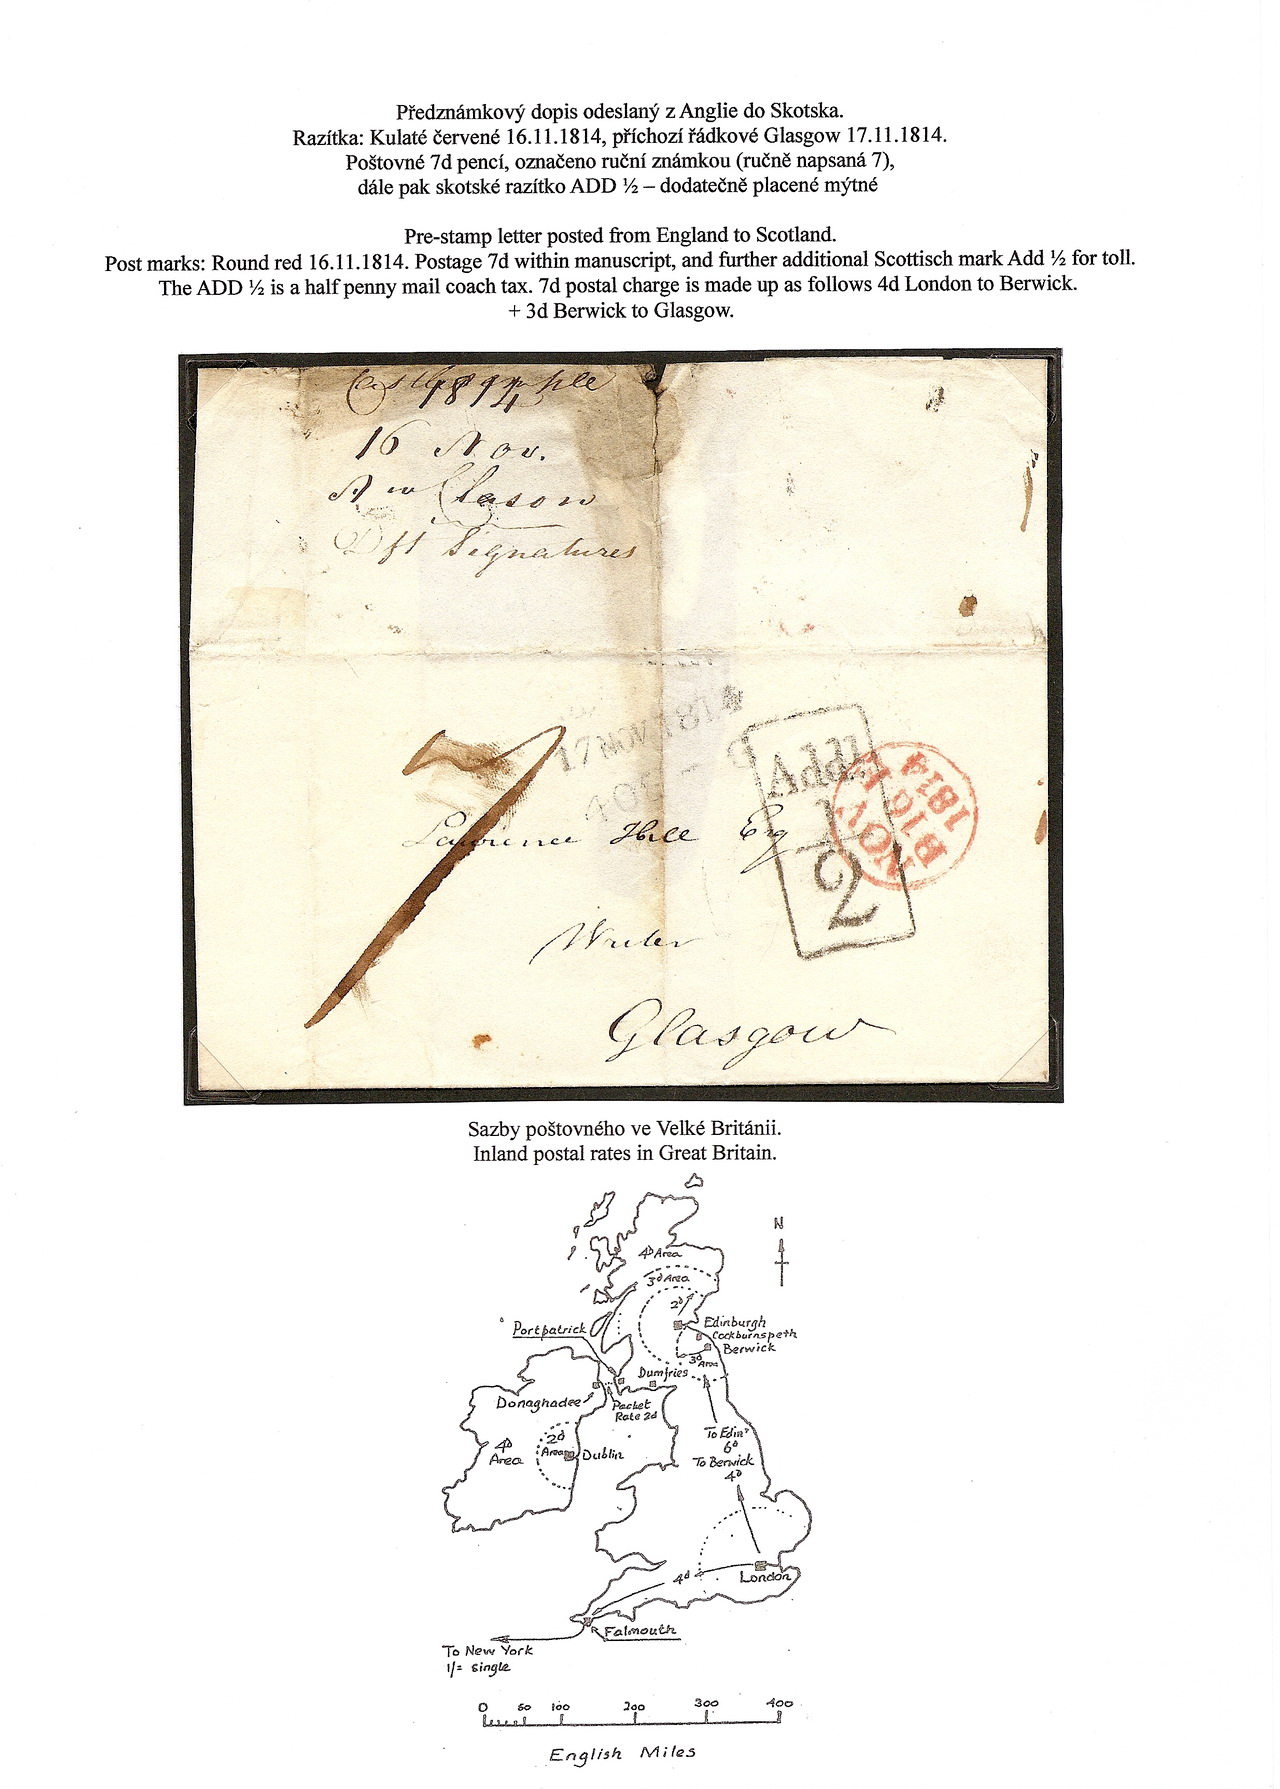 Předznámkový dopis odeslaný z Anglie do Skotska.
Razítka: Kulaté červené 16.11.1814, příchozí řádkové Glasgow 17.11.1814.
Poštovné 7d pencí, označeno ruční známkou (ručně napsaná 7),
dále pak skotské razítko ADD ½ – dodatečně placené mýtné
Pre-stamp letter posted from England to Scotland.
Post marks: Round red 16.11.1814. Postage 7d within manuscript, and further additional Scottisch mark Add ½ for toll.
The ADD ½ is a half penny mail coach tax. 7d postal charge is made up as follows 4d London to Berwick.
+ 3d Berwick to Glasgow.
1814
16 Nov.
Signatures
17 NOV 1814
7
Addl
1
2
NOV
B 16 E
1814
Lawrence Hill Esq
Writer
Glasgow
Sazby poštovného ve Velké Británii.
Inland postal rates in Great Britain.
N
4D Area
3d Area
2d
Edinburgh
Cockburnspeth
Berwick
3d Area
Portpatrick
Dumfries
Donaghadee
Packet
Rate 2d
4D
Area
2d
Area
Dublin
To Edinr
6d
To Berwick
4d
4d
London
Falmouth
To New York
1/= single
0 50 100 200 300 400
English Miles